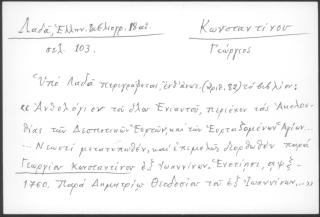 Λαδᾶ, Ἑλλην. Βιβλιογρ. 18 αἰ.
Κωνσταντίνου
σελ. 103.
Γεώργιος
Ὑπὸ Λαδᾶ περιγράφεται, ἐνθ' ἀνωτ. (ἀριθ. 82) τὸ βιβλίον:
« Ἀνθολόγιον τοῦ ὅλου Ἐνιαυτοῦ, περιέχον τὰς Ἀκολου-
θίας τῶν Δεσποτικῶν Ἑορτῶν, καὶ τῶν Ἑορταζομένων Ἁγίων...
... Νεωστὶ μετατυπωθὲν, καὶ ἐπιμελῶς διορθωθὲν παρὰ
Γεωργίου Κωνσταντίνου ἐξ Ἰωαννίνων. Ἐνετίῃσι, αψξ –
1760. Παρὰ Δημητρίῳ Θεοδοσίου τοῦ ἐξ Ἰωαννίνων...»